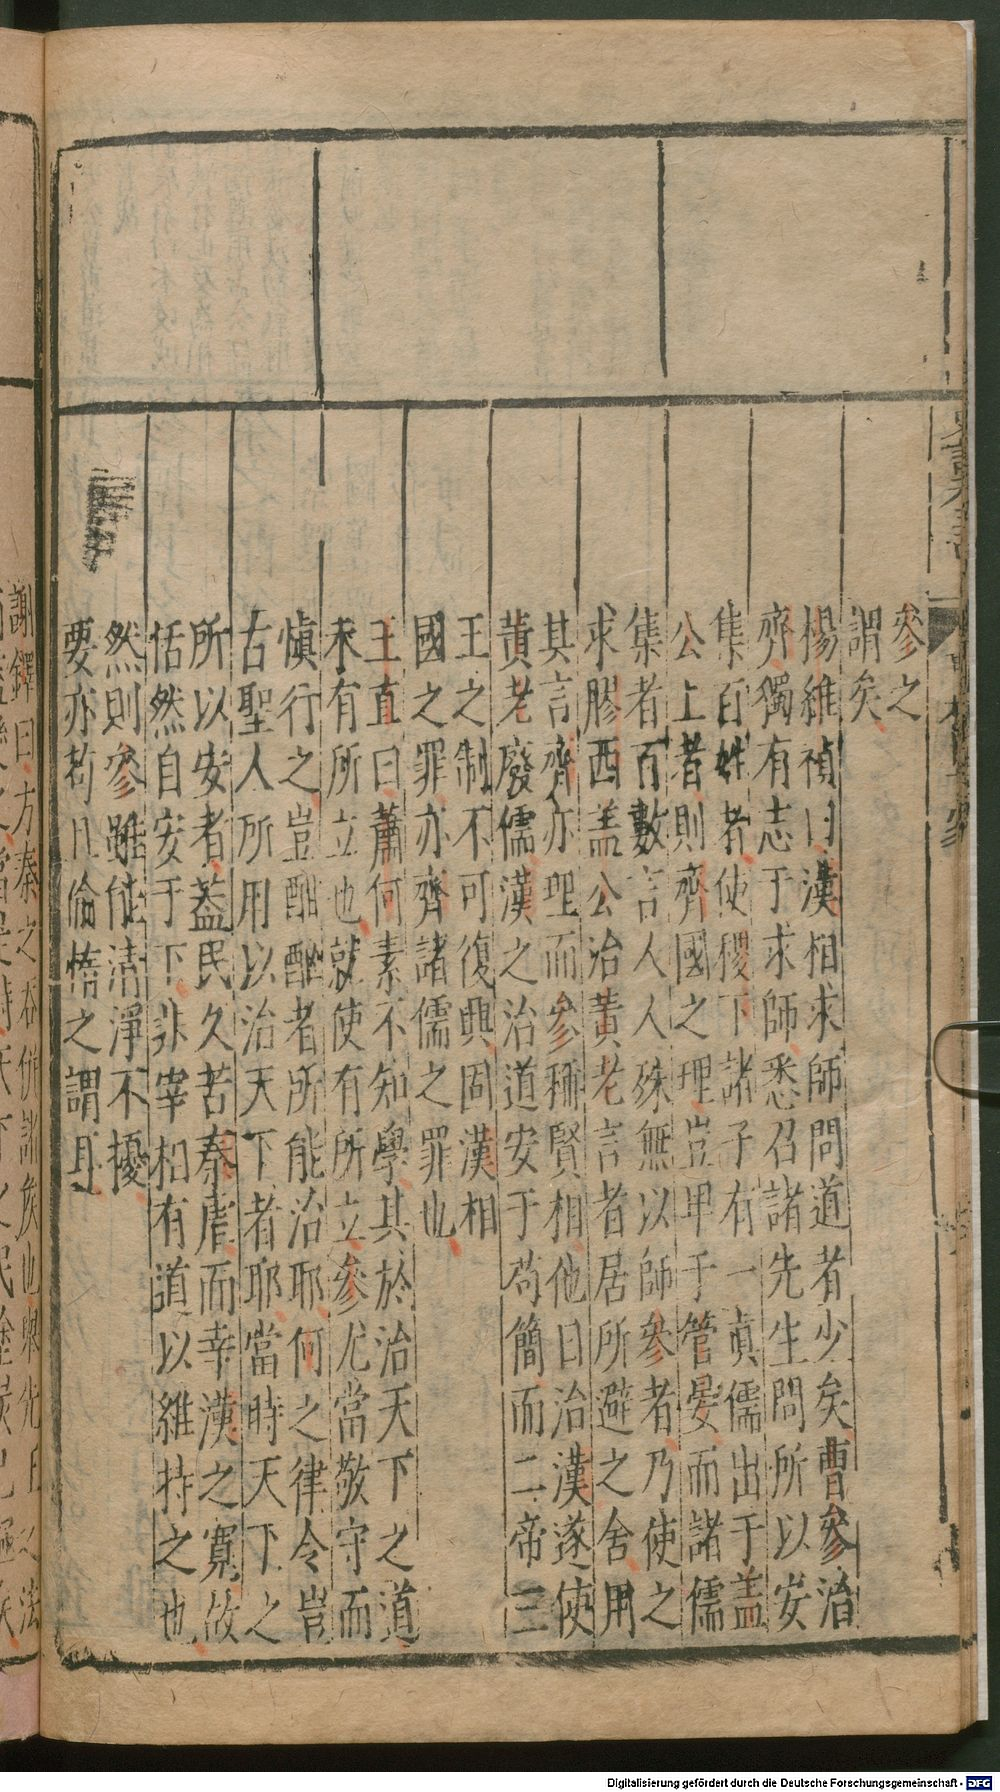 參之
謂矣
楊維禎曰漢相求師問道者少矣曹參治
齊獨有志于求師悉召諸先生問所以安
集百姓者使稷下諸子有一眞儒出于蓋
公上者則齊國之理豈卑于管晏而諸儒
集者百數言人人殊無以師參者乃使之
求膠西盖公治黄老言者居所避之舍用
其言齊亦理而參稱賢相他日治漢遂使
黄老廢儒漢之治道安于苟簡而二帝三
王之制不可復興固漢相
國之罪亦齊諸儒之罪也
王直曰蕭何素不知學其於治天下之道
未有所立也就使有所立參尤當敬守而
愼行之豈酣酣者所能治耶何之律令豈
古聖人所用以治天下者耶當時天下之
所以安者蓋民久苦秦虐而幸漢之寬故
恬然自安于下非宰相有道以維持之也
然則參雖能清淨不擾
要亦苟且偷惰之謂耳
謝鐸曰方秦之吞併諸侯也舉先王之法
Digitalisierung gefördert durch die Deutsche Forschungsgemeinschaft - DFG